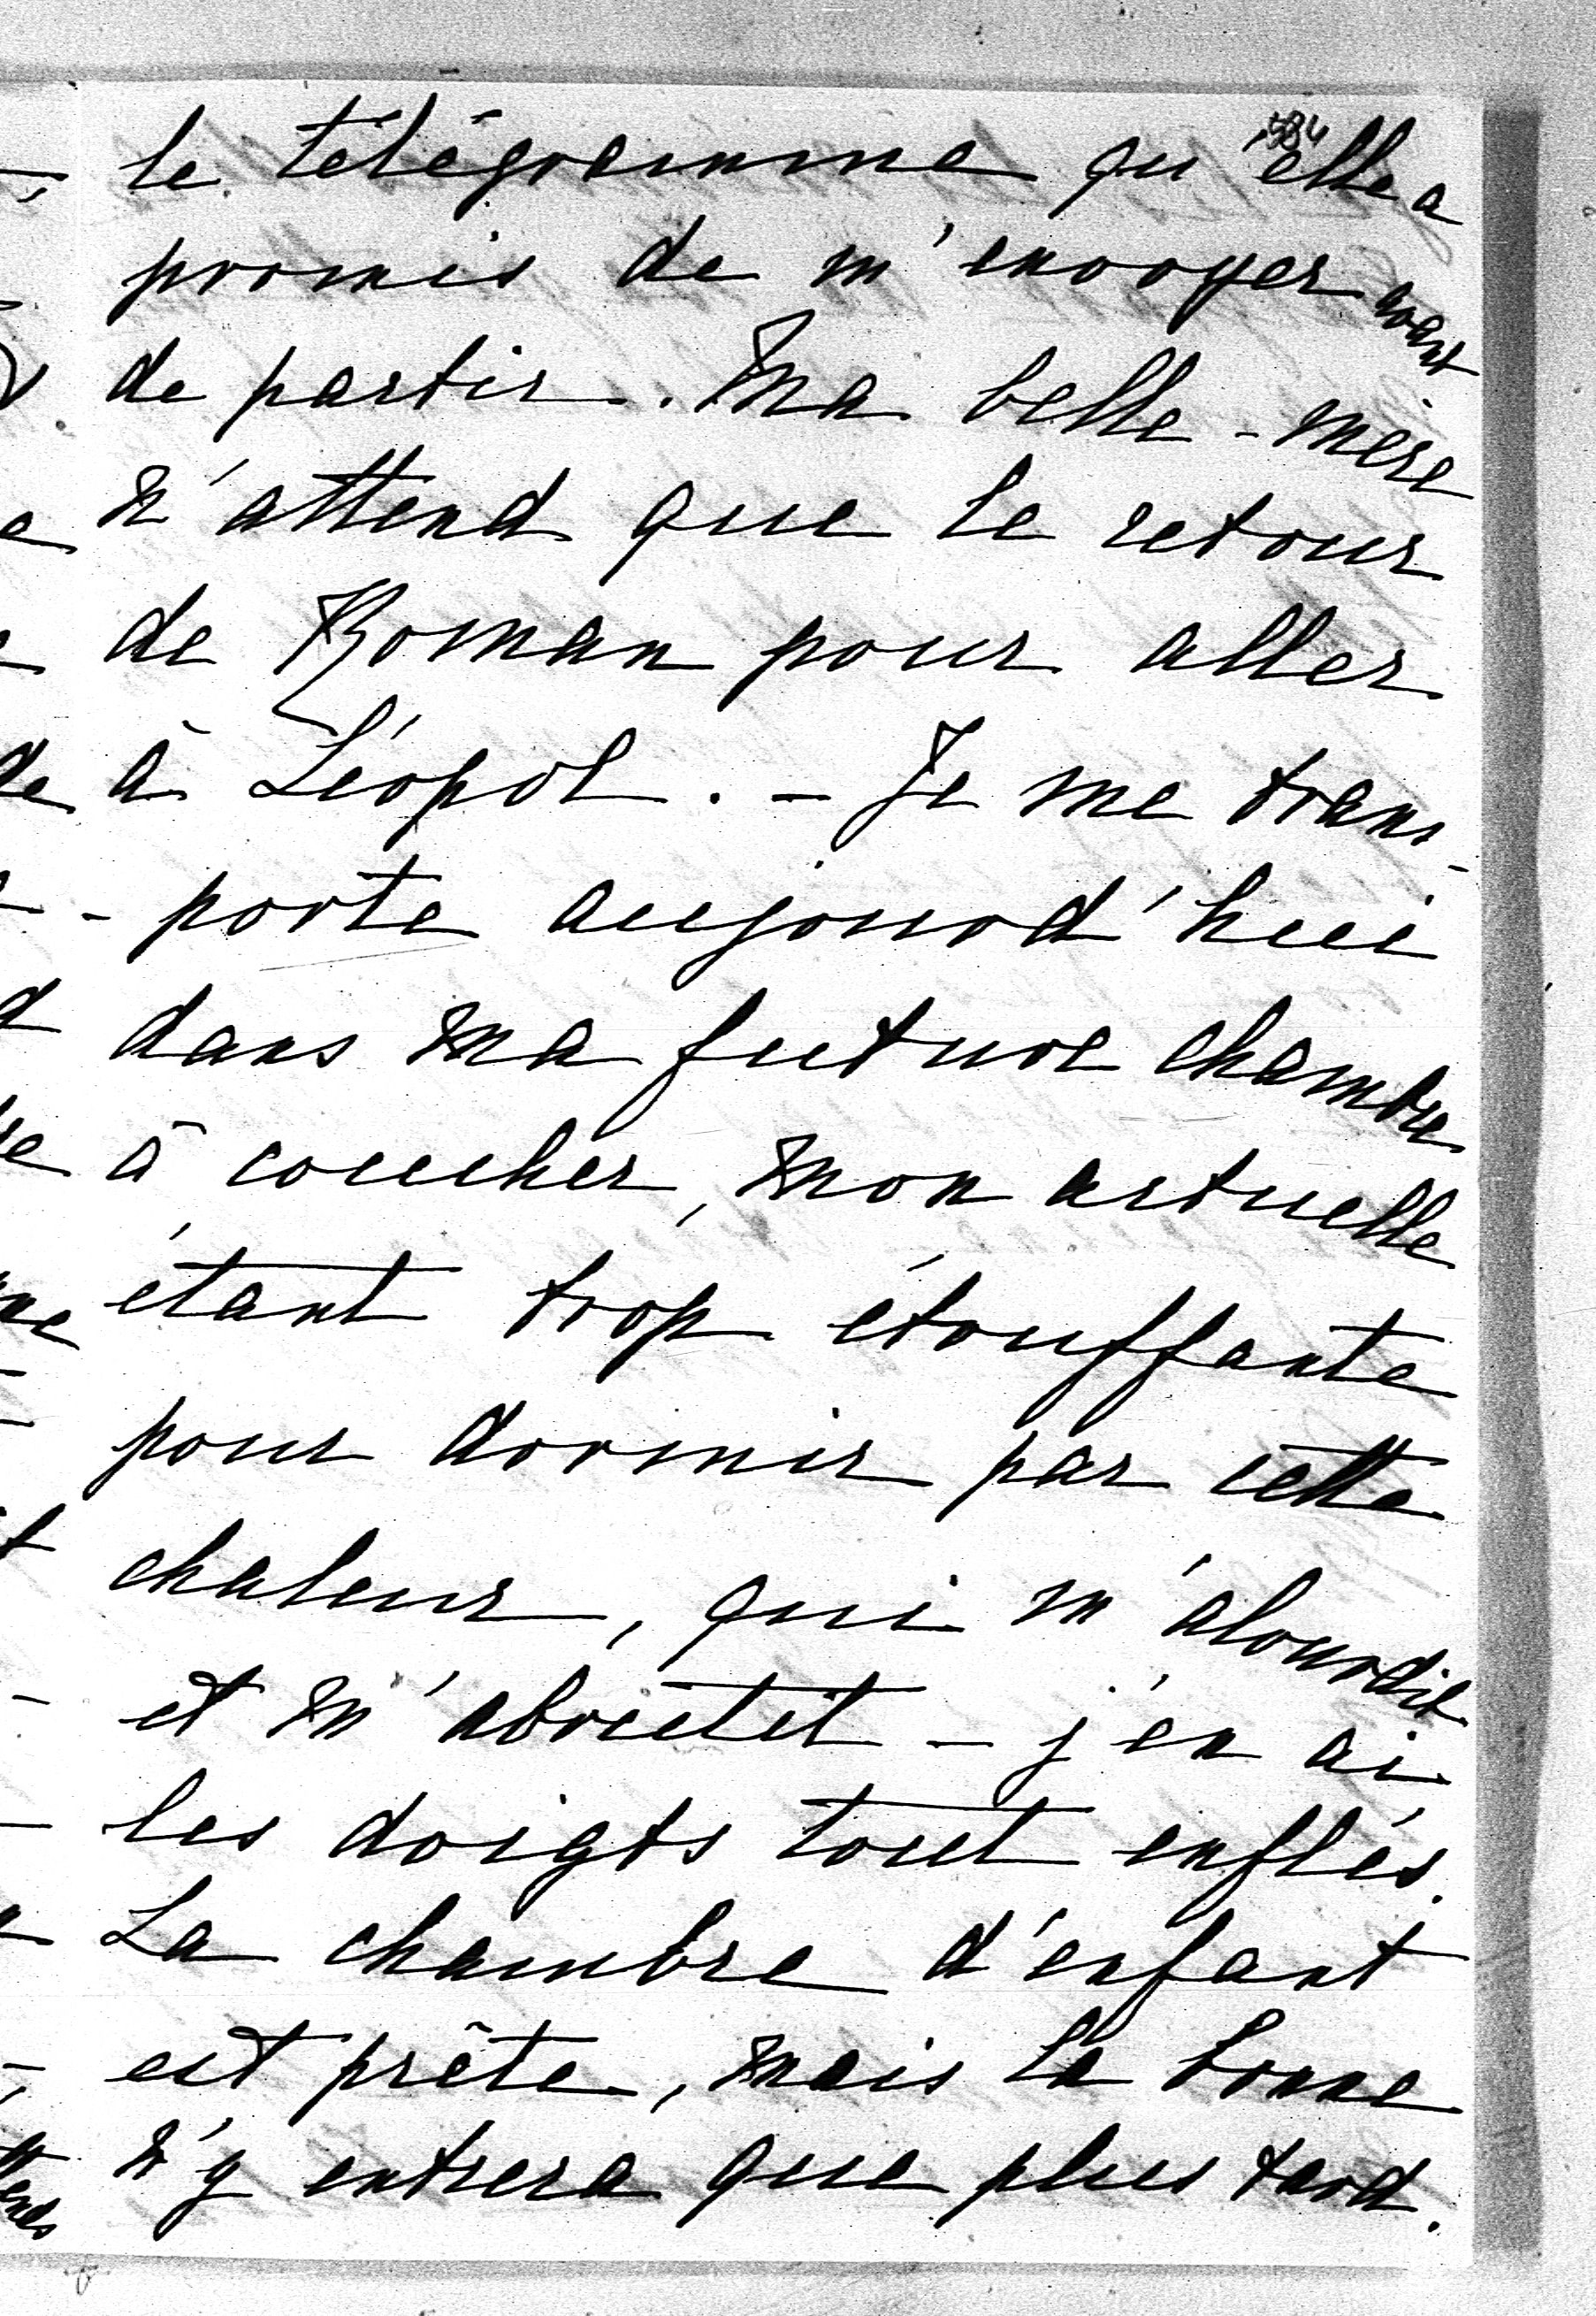 584
le télégramme qu'elle a
promis de m'envoyer avant
de partir. Ma belle-mère
n'attend que le retour
de Roman pour aller
à Léopol. - Je me trans-
- porte aujourd'hui
dans ma future chambre
à coucher, mon actuelle
étant trop étouffante
pour dormir par cette
chaleur, qui m'alourdit
et m'abrutit - j'en ai
les doigts tout enflés.
La chambre d'enfant
est prête, mais la bonne
n'y entrera que plus tard.